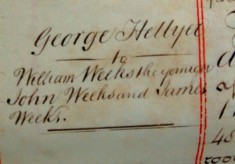 George Hellyer
to
William Weeks the younger
John Weeks and James
Weeks.